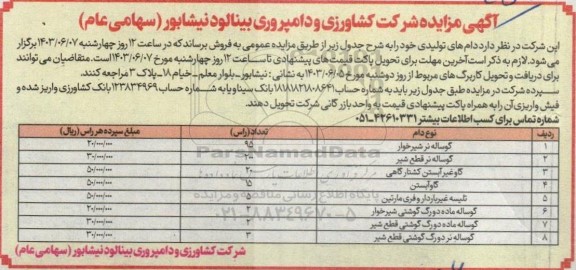 آگهی مزایده شرکت کشاورزی و دامپروری بینالود نیشابور (سهامی عام)
این شرکت در نظر دارد دام های تولیدی خود را به شرح جدول زیر از طریق مزایده عمومی به فروش برساند که در ساعت ۱۲ روز چهارشنبه ۱۴۰۳/۰۶/۰۷ برگزار
می شود. لازم به ذکر است آخرین مهلت برای تحویل پاکت قیمت های پیشنهادی تا ساعت ۱۲ روز چهارشنبه مورخ ۱۴۰۳/۰۶/۰۷ است. متقاضیان می توانند
برای دریافت و تحویل کاربرگ های مربوط از روز دوشنبه مورخ ۱۴۰۳/۰۶/۰۵ به نشانی: نیشابور - بلوار معلم - خیام ۱۸ - پلاک ۳ مراجعه کنند.
سپرده شرکت در مزایده طبق جدول زیر باید به شماره حساب بانک سینا و یا به شماره حساب بانک کشاورزی واریز شده و
فیش واریزی آن را به همراه پاکت پیشنهادی قیمت به واحد بازرگانی شرکت تحویل دهند.
شماره تماس برای کسب اطلاعات بیشتر ۴۲۶۱۰۳۳۱-۰۵۱
ردیف نوع دام تعداد (راس) مبلغ سپرده هر راس (ریال)
۱ گوساله نر شیرخوار ۹۵ ۳۰/۰۰۰/۰۰۰
۲ گوساله نر قطع شیر
۳ گاو غیر آبستن کشتار گاهی ۲۰ ۵۰/۰۰۰/۰۰۰
۴ گاو آبستن ۱۵ ۵۰/۰۰۰/۰۰۰
۵ تلیسه غیرباردار و فری مارتین ۵ ۵۰/۰۰۰/۰۰۰
۶ گوساله ماده دورگ گوشتی شیرخوار ۲ ۲۰/۰۰۰/۰۰۰
۷ گوساله ماده دورگ گوشتی قطع شیر ۳۰/۰۰۰/۰۰۰
۸ گوساله نر دورگ گوشتی قطع شیر ۳ ۳۰/۰۰۰/۰۰۰
شرکت کشاورزی و دامپروری بینالود نیشابور (سهامی عام)
ParsNamadData
پایگاه اطلاع رسانی مناقصه و مزایده
۰۲۱-۸۸۳۴۹۶۷۰-۵